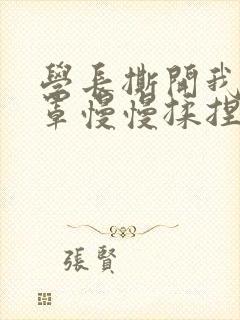 學長撕開我
罩慢慢揉捏
張賢